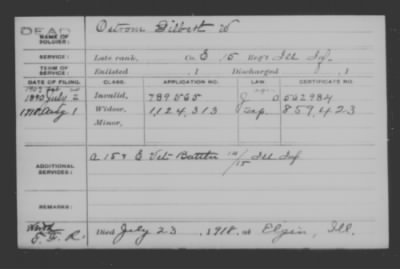 DEAD
NAME OF SOLDIER: Ostrom Gilbert W
SERVICE: Late rank, Co. E 15 Reg't Ill Inf.
TERM OF SERVICE: Enlisted , 1 Discharged , 1
DATE OF FILING. CLASS. APPLICATION NO. LAW. CERTIFICATE NO.
1890 July 2 Invalid, 789565 562984
1918 Widow, 1124,313 859,423
Minor,
ADDITIONAL SERVICES: E Vet Battn 14/15 Ill Inf
REMARKS:
Died July 23, 1918, at Elgin, Ill.